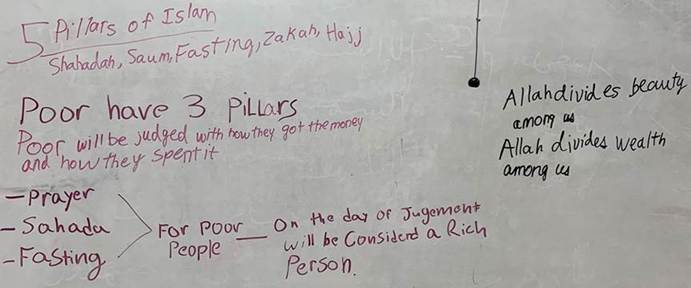 5 Pillars of Islam
Shahadah, Saum, Fasting, Zakah, Hajj
Poor have 3 Pillars
Poor will be judged with how they got the money
and how they spent it
- Prayer
- Sahada
- Fasting
For Poor
People
On the day of Jugement
will be Considerd a Rich
Person.
Allah divides beauty
among us
Allah divides wealth
among us